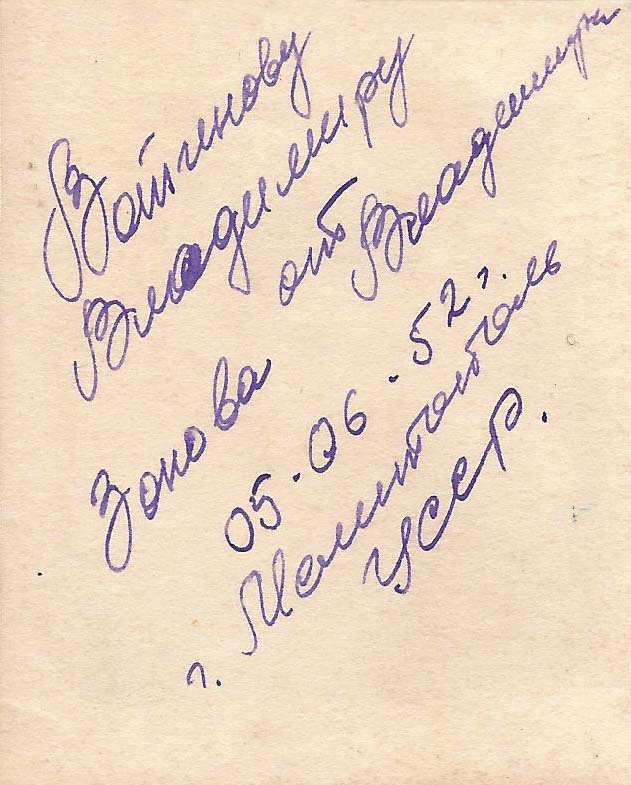 Вотинову
Владимиру
от Владимира
Зонова
05.06.52 г.
г. Мелитополь
УССР.